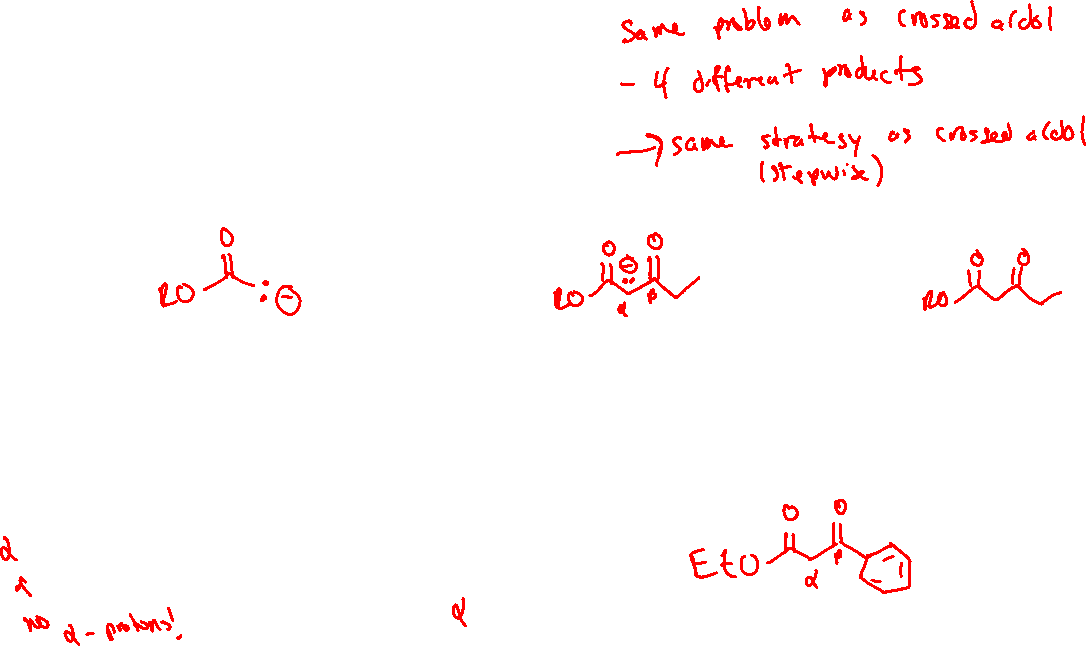 Same problem as crossed aldol
- 4 different products
→ same strategy as crossed aldol
(stepwise)
O
RO : ⊖
O ⊖ O
RO α β
O O
RO
O O
EtO α β
α
α
no α - protons!
α